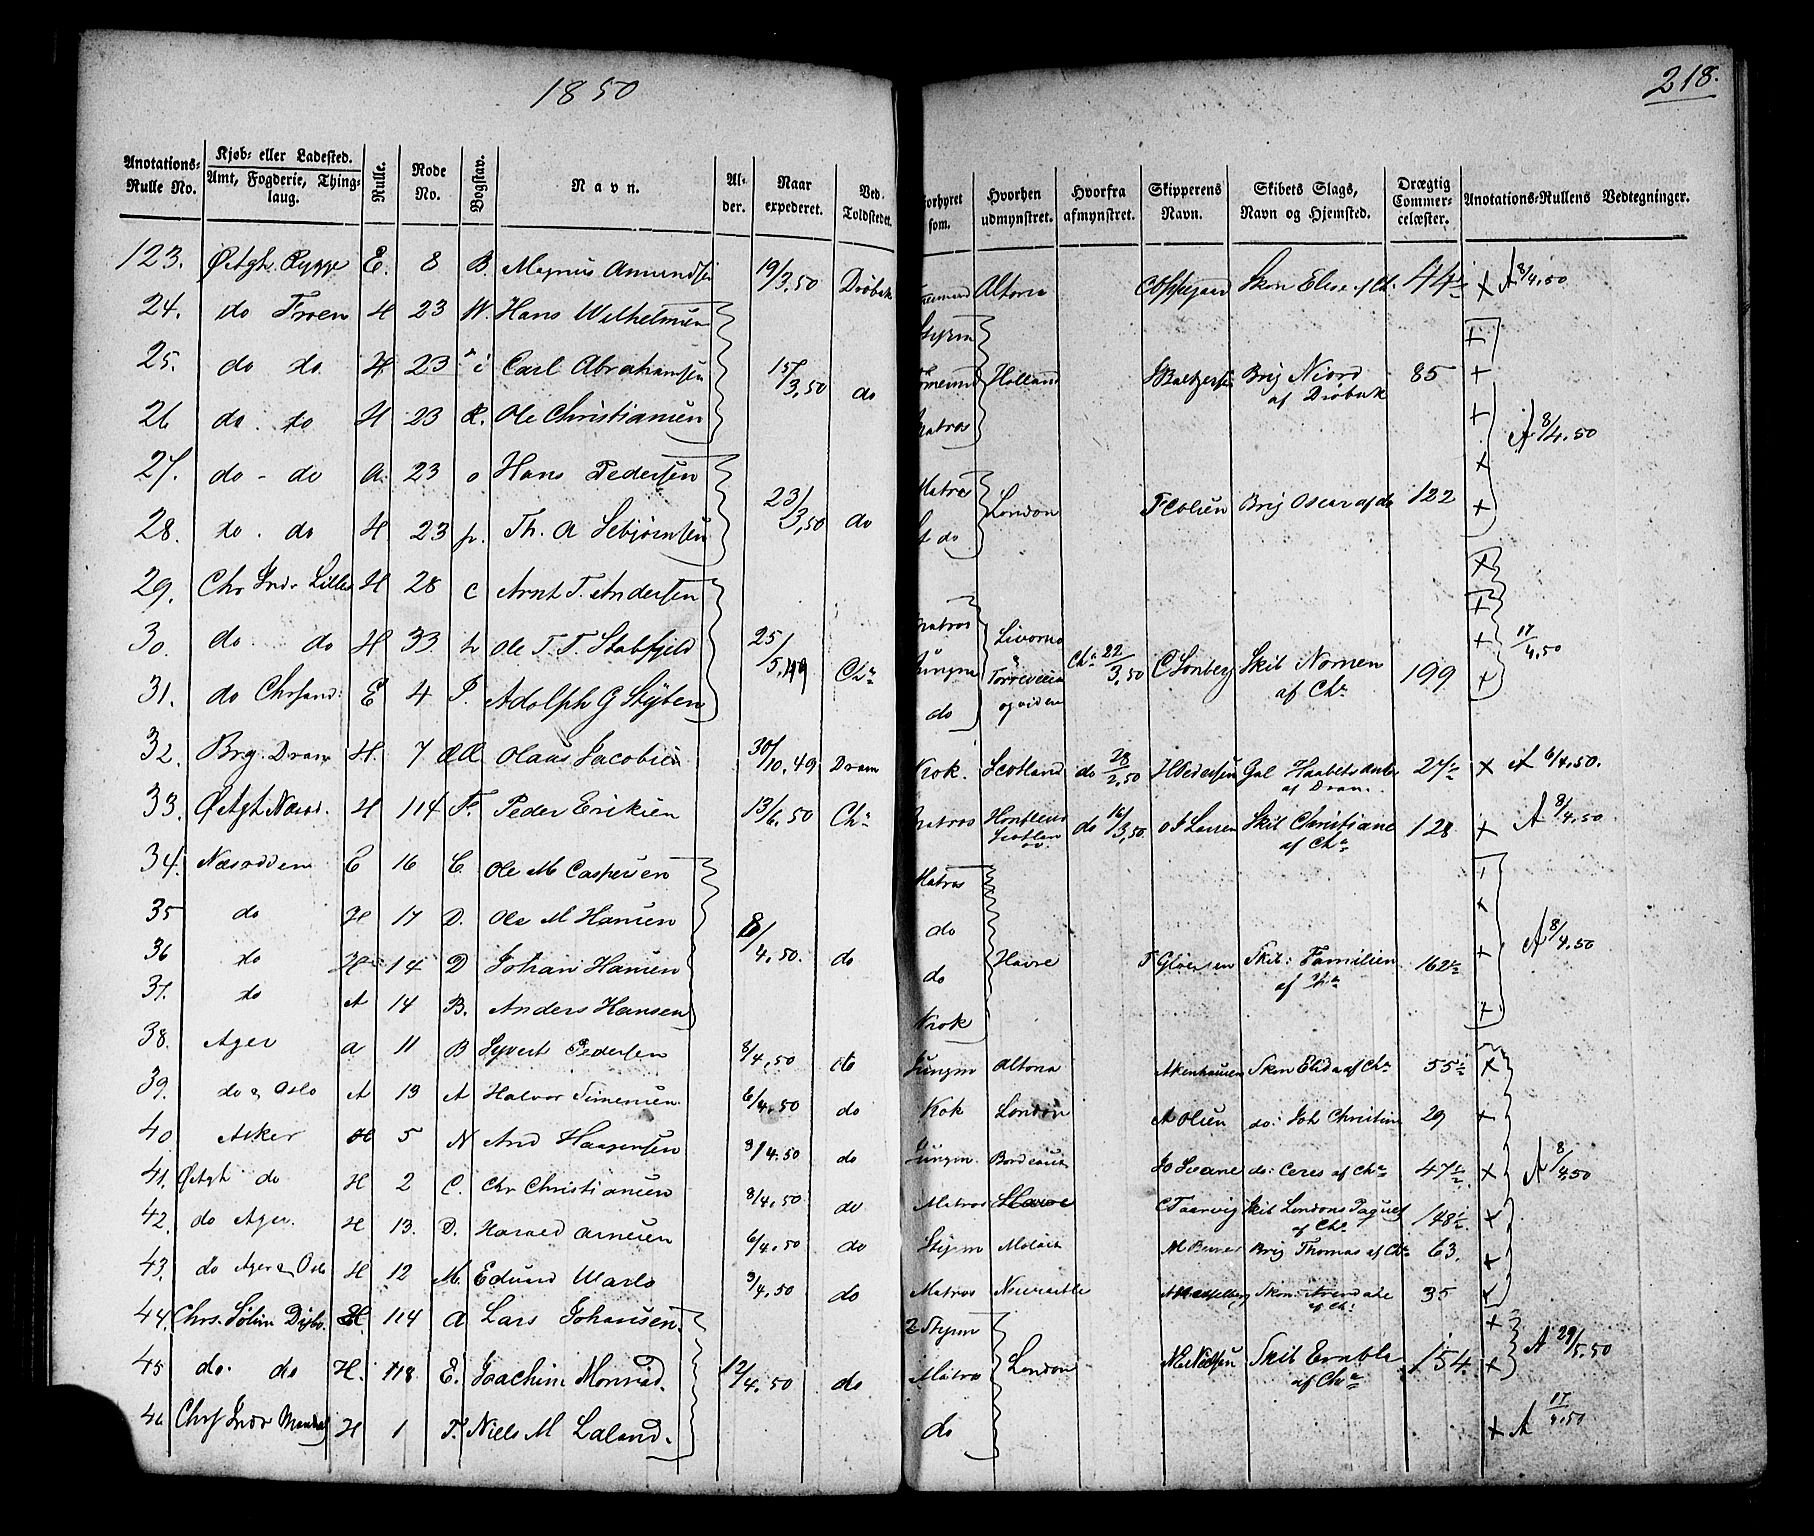 1850
218.
Anotations-Rulle No. | Kjøb- eller Ladested. Amt, Fogderie, Thinglaug. | Rulle. | Rode No. | Bogstav. | Navn. | Alder. | Naar expederet. | Ved Toldstedet. | Forhyret som. | Hvorhen udmynstret. | Hvorfra afmynstret. | Skipperens Navn. | Skibets Slags, Navn og Hjemsted. | Drægtig Commercelæster. | Anotations-Rullens Vedtegninger.
123. Rygge E. 8 B. Magnus Amundsen 19/3.50 Drøbak Altona Skon Elise af Ch. 44½ × A 8/4.50
24. do Froen H 23 W. Hans Wilhelmsen Styrm +
25. do do H 23 Carl Abrahamsen 15/3.50 do Holland Brig Niord af Drøbak 85 +
26 do. do H 23 R. Ole Christiansen Matros + A 8/4.50
27. do - do a. 23 o Hans Pedersen Matros ×
28. do. do H 23 p. Th. A Sebjørnsen 23/3.50 do do London Brig Oscar af do 122 ×
29. Chr H 28 c Arnt T. Andersen Matros ×
30. do. do H 33 Ole T. T. Stabfjeld 25/5.49 Chª Jungm Livorno Chª 22/3.50 Skib Nornen af Chª 199 + 17/4.50
31. do Chrsand: E 4 Adolph G Styben do ×
32. Brg. Dram H. 7 Olaus Jacobsen 30/10.49 Dram Kok. Scotland do 28/2.50 H Pedersen Gal Haabets Anker af Dram. 27½ × A 6/4.50.
33. H 114 F. Peder Eriksen 13/6.50 Chª Matros do 16/3.50 Larsen Skib Christiane af Chª 128 × A 8/4.50.
34. Næsodden E 16 C. Ole M Caspersen Matros +
35 do H 17 D. Ole M Hansen do ×
36 do H 14 D Johan Hansen 8/4.50. do do Havre Skib: Familien af Chª 162½ + A 8/4.50
37. do A 14 B. Anders Hansen Kok +
38. Ager a 11 B Syvert Pedersen 8/4.50 do Jungm Altona Skon Elida af Chª 55½ ×
39. do & Oslo A 13 A Halvor Simensen 6/4.50 do Kok London A Olsen do: Joh Christin 29 ×
40 Asker H 5 N And Haagensen 3/4.50 do Jungm. Bordeaux do: Ceres af Chª 47½ × A 8/4.50
41. do H 2 C. Chr Christiansen 8/4.50 do Matros Havre C Taarvig Skib Londons Paquet af Chª 148½ ×
42. do Ager. H 13. D. Harald Arnesen 6/4.50 do Styrm Brig Thomas af Chª 63. ×
43. do Ager & Oslo H 12 M. Edvard 3/4.50 do Matros Newcastle Skon: af Chª 35 ×
44. Chrs. H. 114 a Lars Johansen. 2 Styrm ×
45 do. do H. 118 E. Joachim Monrad. 12/4.50 do Matros London Skib af Chª 154 × A 29/5.50
46 Mandal H 1 T. Niels M Laland. do × A 17/4.50